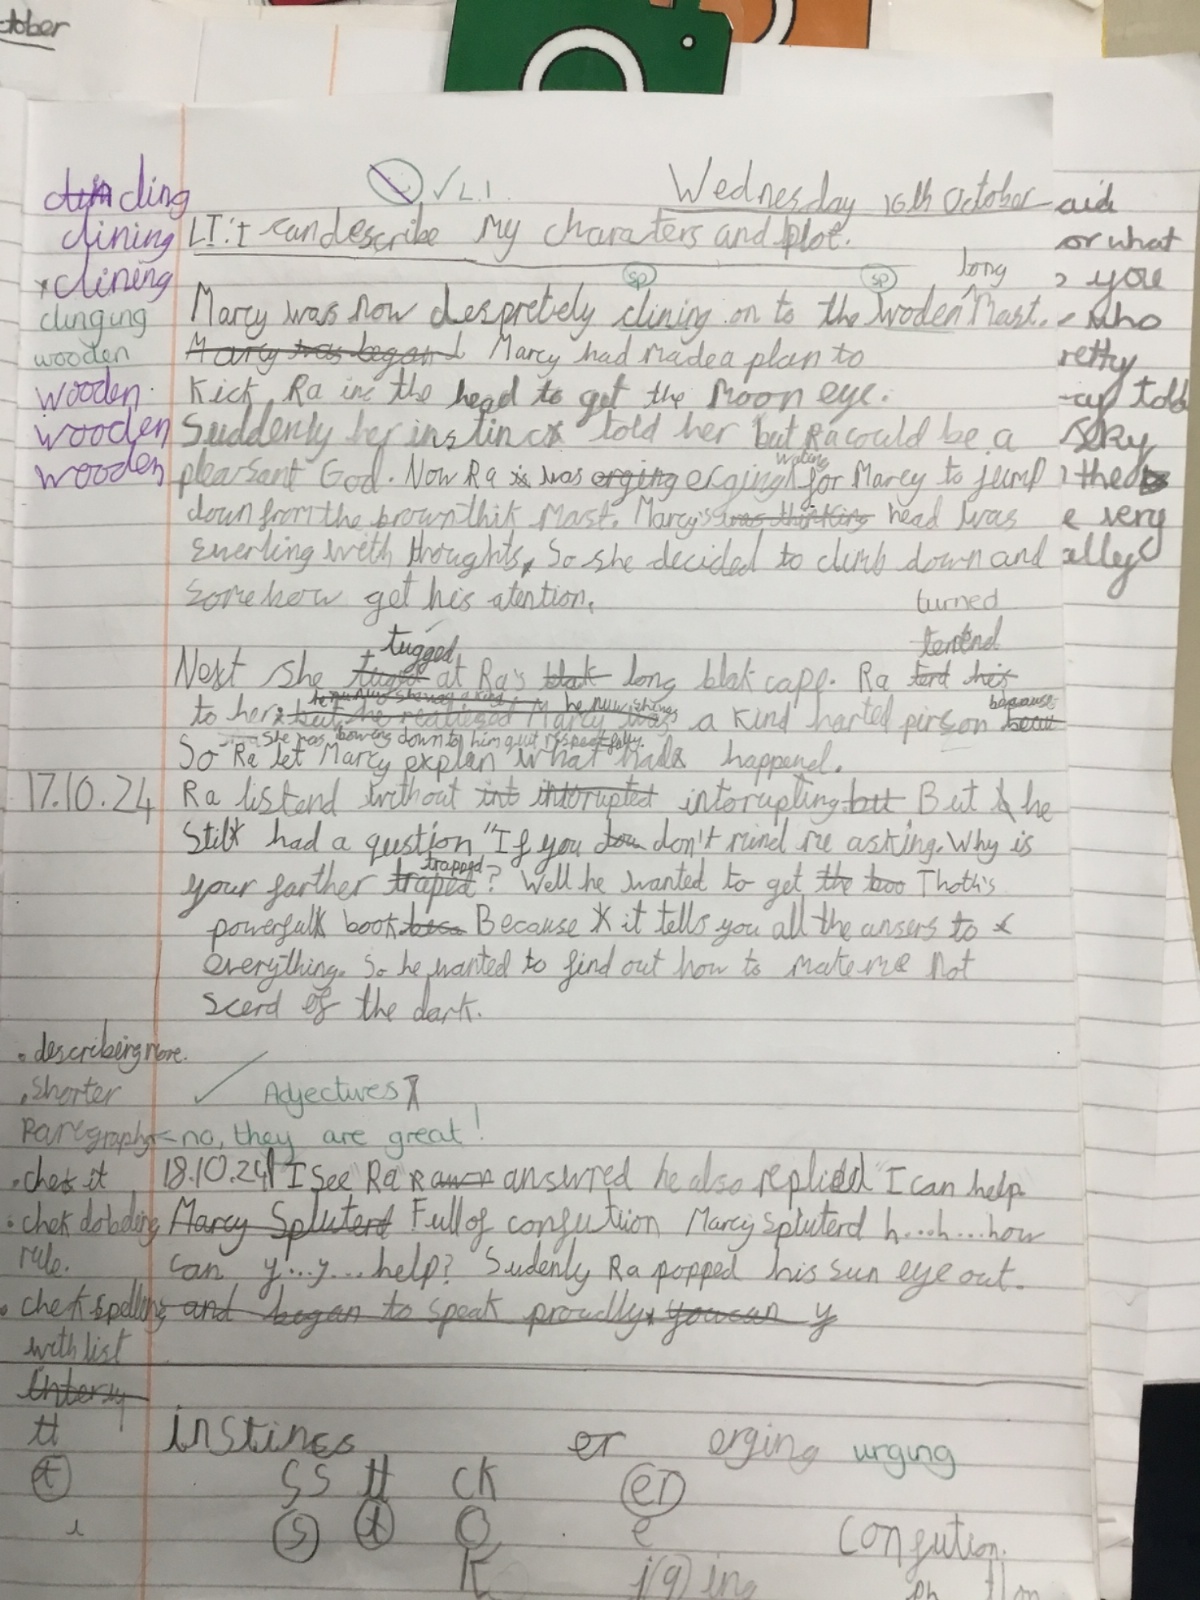 ctober
✓ L.I.
Wednesday 16th October
LI: I can describe my charaters and plot.
cling
clining
clining
clinging
wooden
wooden
wooden
wooden
sp sp long
Marcy was now despretely clining on to the woden Mast.
Marcy was began Marcy had made a plan to
Kick Ra in the head to get the Moon eye.
Suddenly her instincs told her but Ra could be a
pleasant God. Now Ra is was orging erging wating for Marcy to jump
down from the brown thik Mast. Marcy's was thinking head was
swerling with thoughts, So she decided to climb down and
somehow get his atention.
turned
tugged
Next she at Ra's blak long blak cape. Ra terd his
to her but he realiesed Marcy was he now shings a kind harted pirson because
She was bowing down to him quit respectfully.
So Ra let Marcy explan what had happened.
17.10.24 Ra listend without int intorupted intorupting but But he
Still had a qustion "If you don't mind me asking. Why is
trapped
your farther traped? Well he wanted to get the boo Thoth's
powerfull book Because it tells you all the ansers to
everything. So he wanted to find out how to make me not
scerd of the dark.
. describeing more.
. shorter
✓ Adjectives
Paregraphs - no, they are great!
. chek it
18.10.24 I see Ra answred he also replied "I can help
. chek dobeling
rule.
Marcy Spluterd Full of confution Marcy spluterd h...h...how
can y...y... help? Sudenly Ra popped his sun eye out.
. chek spelling
with list
and began to speak proudly you can y
tt instincs er erging urging
t ss tt ck er
s t e
k j(g) ing
confution.
aid
or what
you
who
retty
told
the
e very
ally